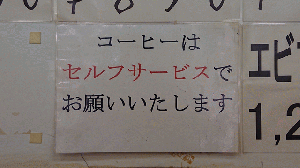 コーヒーは
セルフサービスで
お願いいたします
エビ
1,2